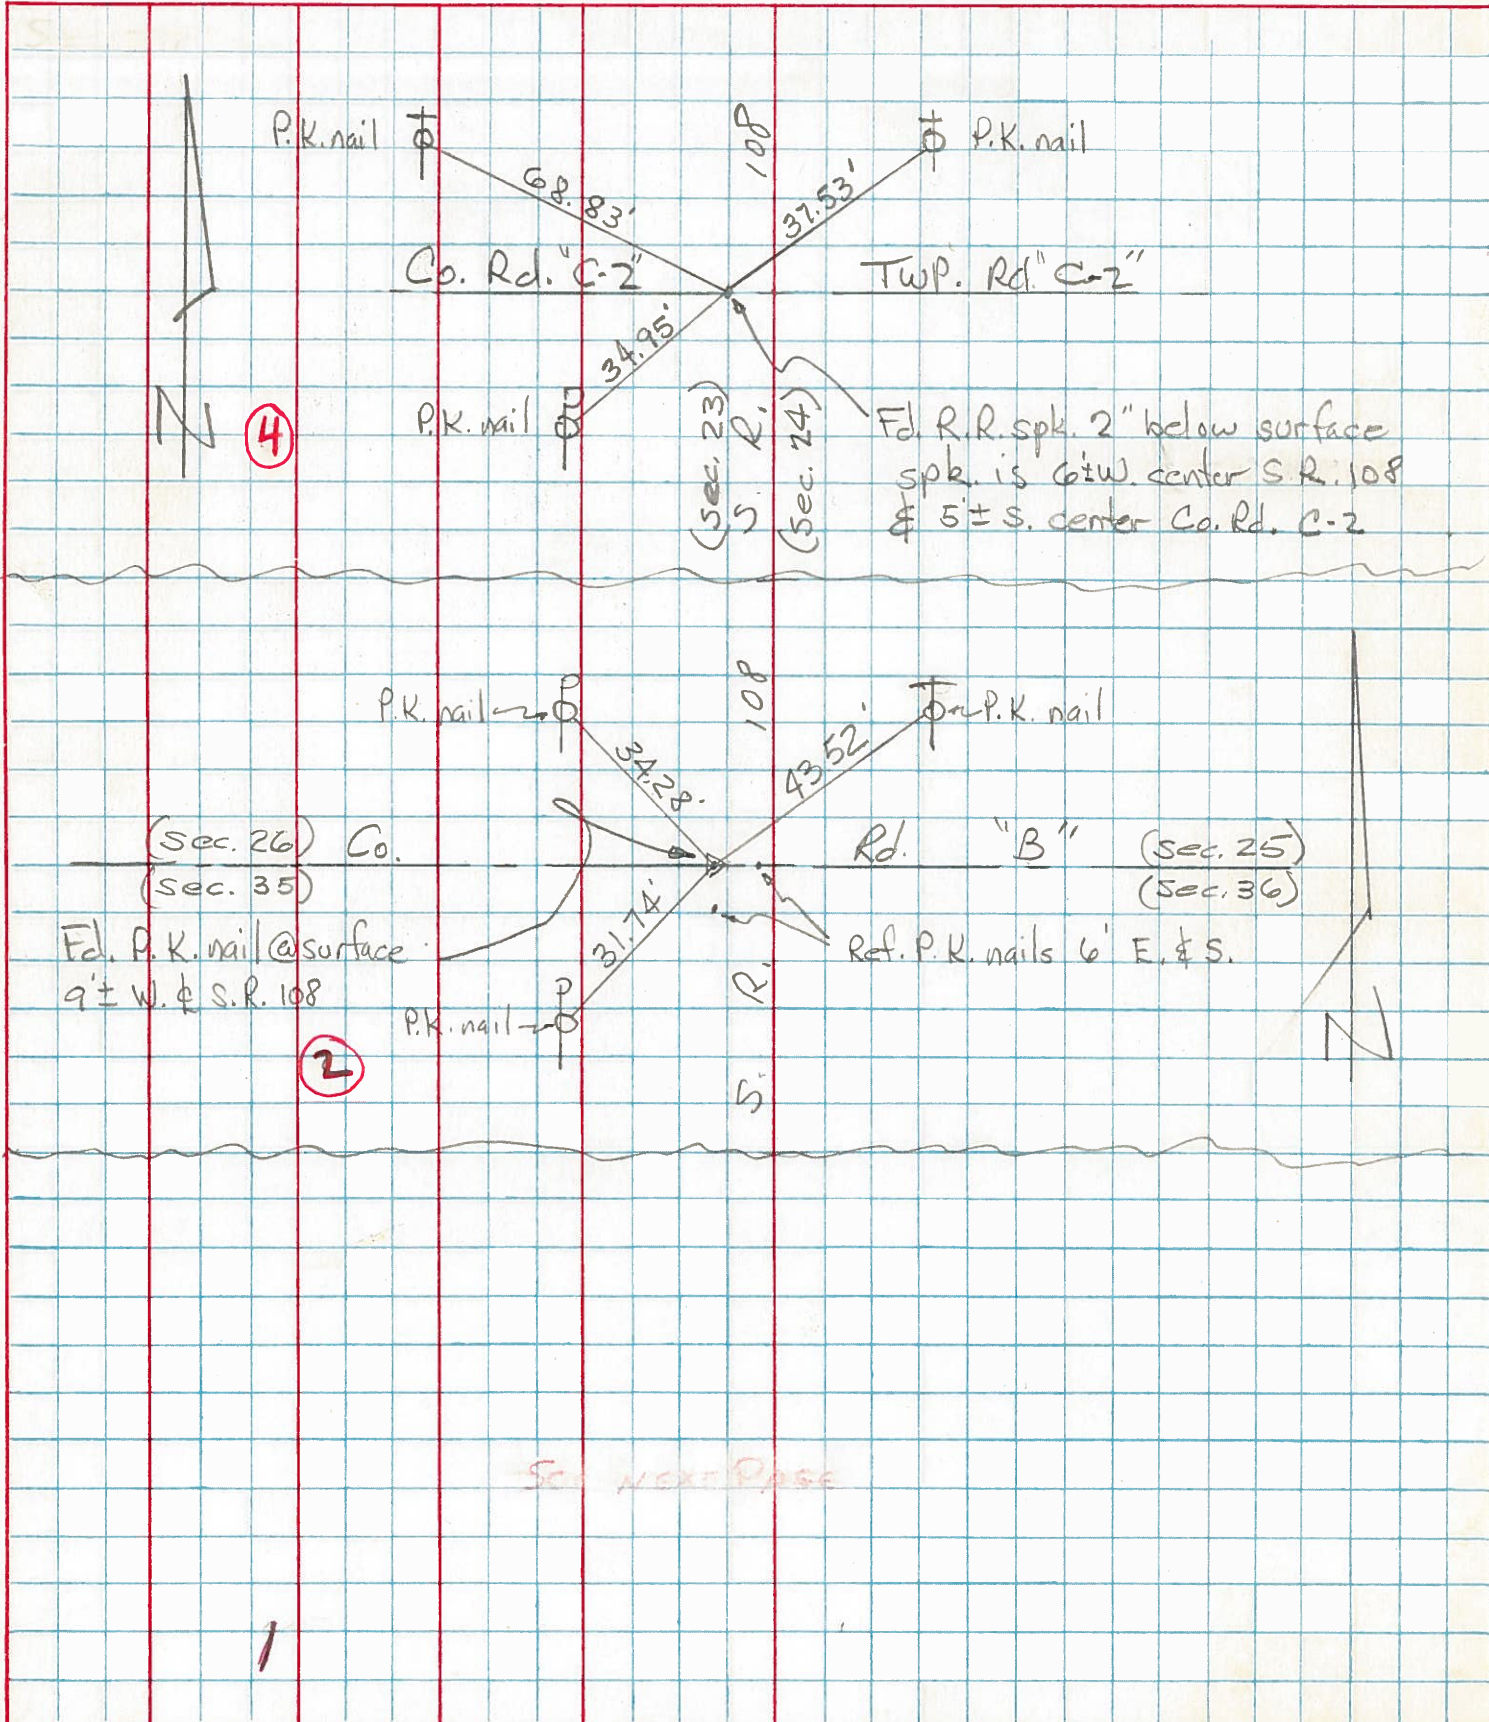 P.K. nail
108
P.K. nail
68.83'
37.53'
Co. Rd. "C-2"
TWP. Rd "C-2"
34.95'
P.K. nail
(Sec. 23)
S. R.
(Sec. 24)
N
4
Fd. R.R. spk. 2" below surface
spk. is 6'±W. center S.R. 108
& 5'± S. center Co. Rd. C-2
P.K. nail
108
P.K. nail
34.28'
43.52'
(Sec. 26)
Co.
Rd.
"B"
(Sec. 25)
(Sec. 35)
(Sec. 36)
31.74'
Fd. P.K. nail @ surface
9'± W. ₵ S.R. 108
Ref. P.K. nails 6' E. & S.
P.K. nail
S. R.
N
2
See NEXT PAGE
1